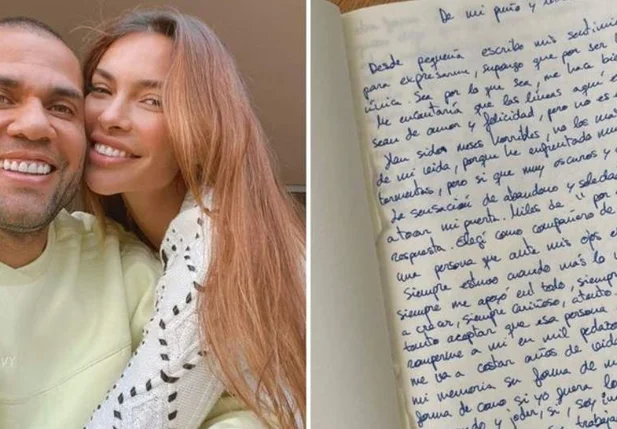 De mi puño y
Desde pequeña escribo mis sentimi
para expresarme, supongo que por ser
única. Sea por lo que sea, me hace bie
Me encantaría que las líneas aquí e
sean de amor y felicidad, pero no es a
Han sido meses horribles, no los más
de mi vida, porque he enfrentado mu
tormentas, pero si que muy oscuros y
La sensación de abandono y soledad
atocar mi puerta. Miles de "por
respuesta. Elegí como compañero de
una persona que ante mis ojos e
siempre estuvo cuando más lo
siempre me apoyó en todo, siempre
a crear, siempre cariñoso, atento
tanto aceptar que esa persona
romperme a mi en mil pedazos
me va a costar años de vida
mi memoria su forma de mi
forma de como si yo fuera lo
y joder, si, soy
trabaja